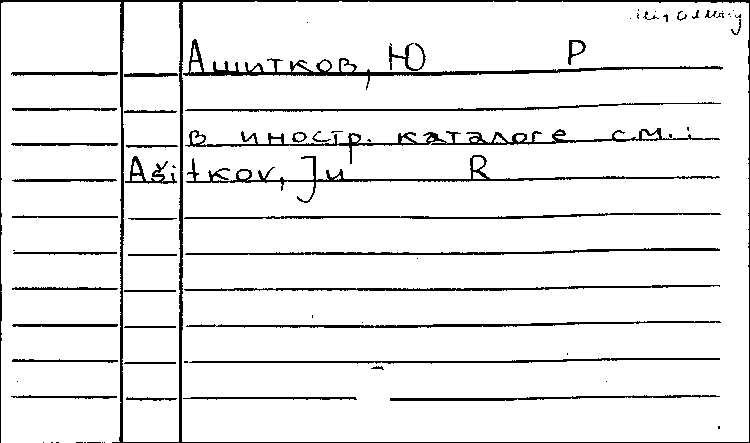 Ашитков, Ю Р
в иностр. каталоге см.:
Ašitkov, Ju R